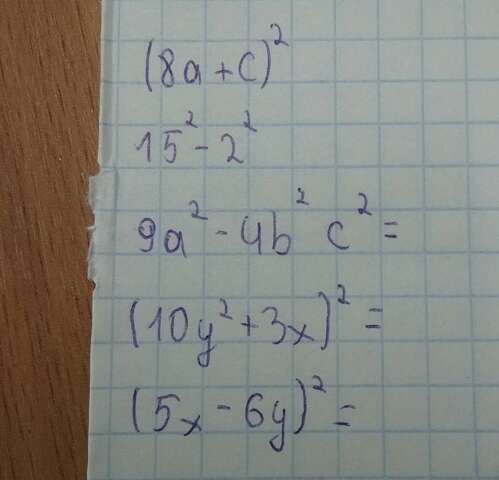 (8a+c)²
15²-2²
9a²-4b²c²=
(10y²+3x)²=
(5x-6y)²=